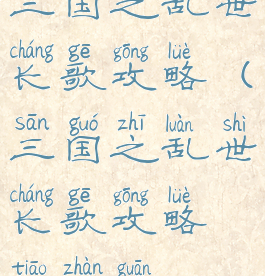 三国之乱世
cháng gē gōng lüè
长歌攻略（
sān guó zhī luàn shì
三国之乱世
cháng gē gōng lüè
长歌攻略
tiāo zhàn guān